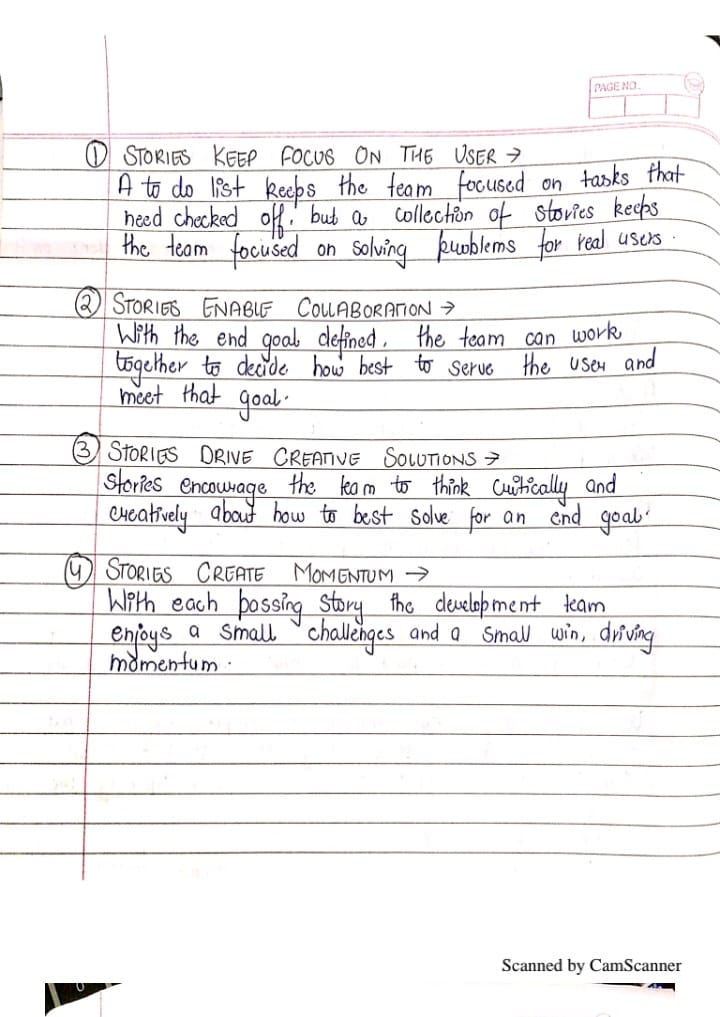 PAGE NO.
① STORIES KEEP FOCUS ON THE USER →
A to do list keeps the team focused on tasks that
need checked off, but a collection of stories keeps
the team focused on solving problems for real users.
② STORIES ENABLE COLLABORATION →
With the end goal defined, the team can work
together to decide how best to serve the user and
meet that goal.
③ STORIES DRIVE CREATIVE SOLUTIONS →
Stories encourage the team to think critically and
creatively about how to best solve for an end goal.
④ STORIES CREATE MOMENTUM →
With each possing story the development team
enjoys a small challenges and a small win, driving
momentum.
Scanned by CamScanner